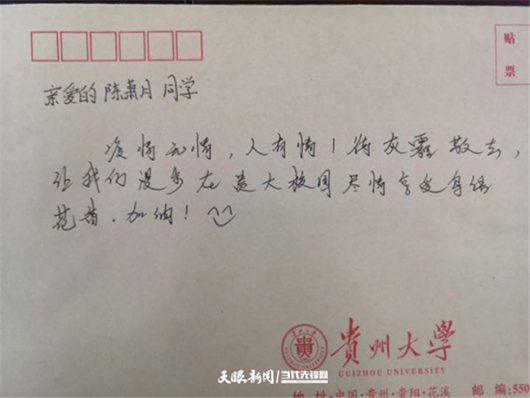 贴
票
亲爱的 陈萧月 同学
疫情无情，人有情！待灰霾散去，
让我们漫步在贵大校园尽情享受鸟语
花香。加油！
貴州大學
GUIZHOU UNIVERSITY
地 址·中国·贵州·贵阳·花溪 邮 编:550
天眼新闻/当代先锋网